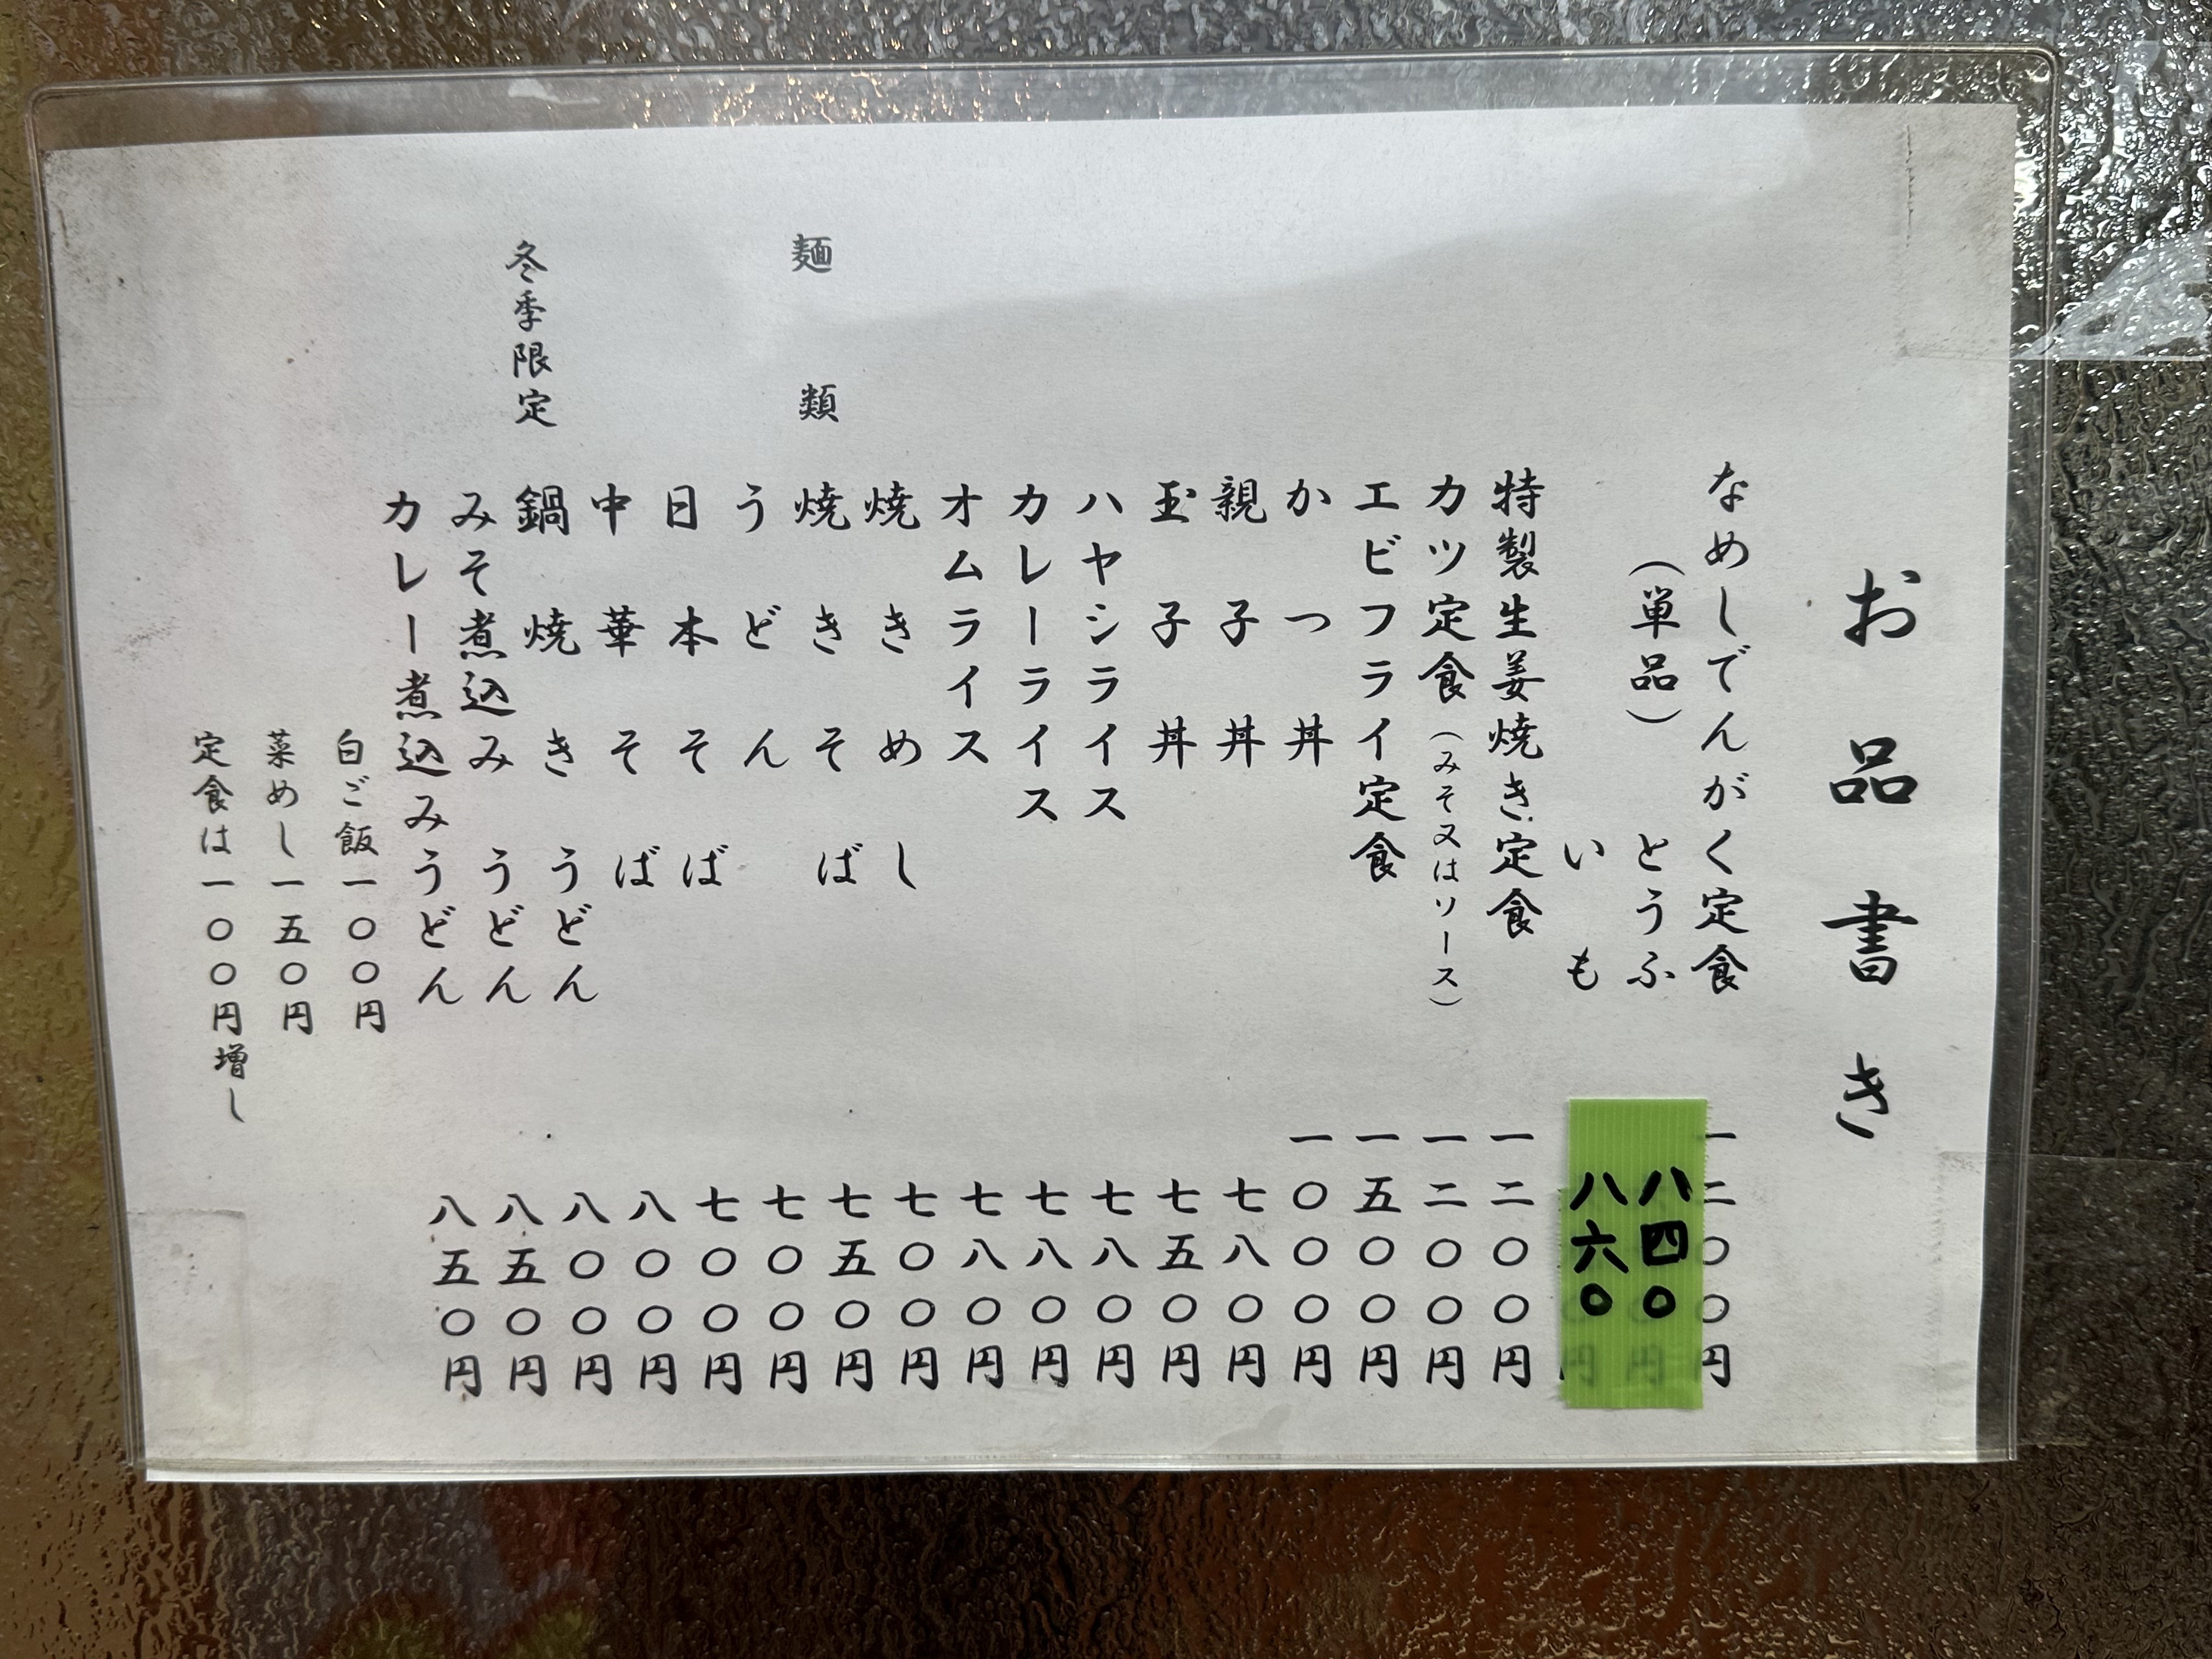 お品書き
なめしでんがく定食 一二〇〇円
（単品） とうふ 八四〇円
いも 八六〇円
特製生姜焼き定食 一二〇〇円
カツ定食（みそ又はソース） 一二〇〇円
エビフライ定食 一五〇〇円
かつ丼 一〇〇〇円
親子丼 七八〇円
玉子丼 七五〇円
ハヤシライス 七八〇円
カレーライス 七八〇円
オムライス 七八〇円
焼きめし 七〇〇円
麺類 焼きそば 七五〇円
うどん 七〇〇円
日本そば 七〇〇円
中華そば 八〇〇円
冬季限定 鍋焼きうどん 八〇〇円
みそ煮込みうどん 八五〇円
カレー煮込みうどん 八五〇円
白ご飯一〇〇円
菜めし一五〇円
定食は一〇〇円増し